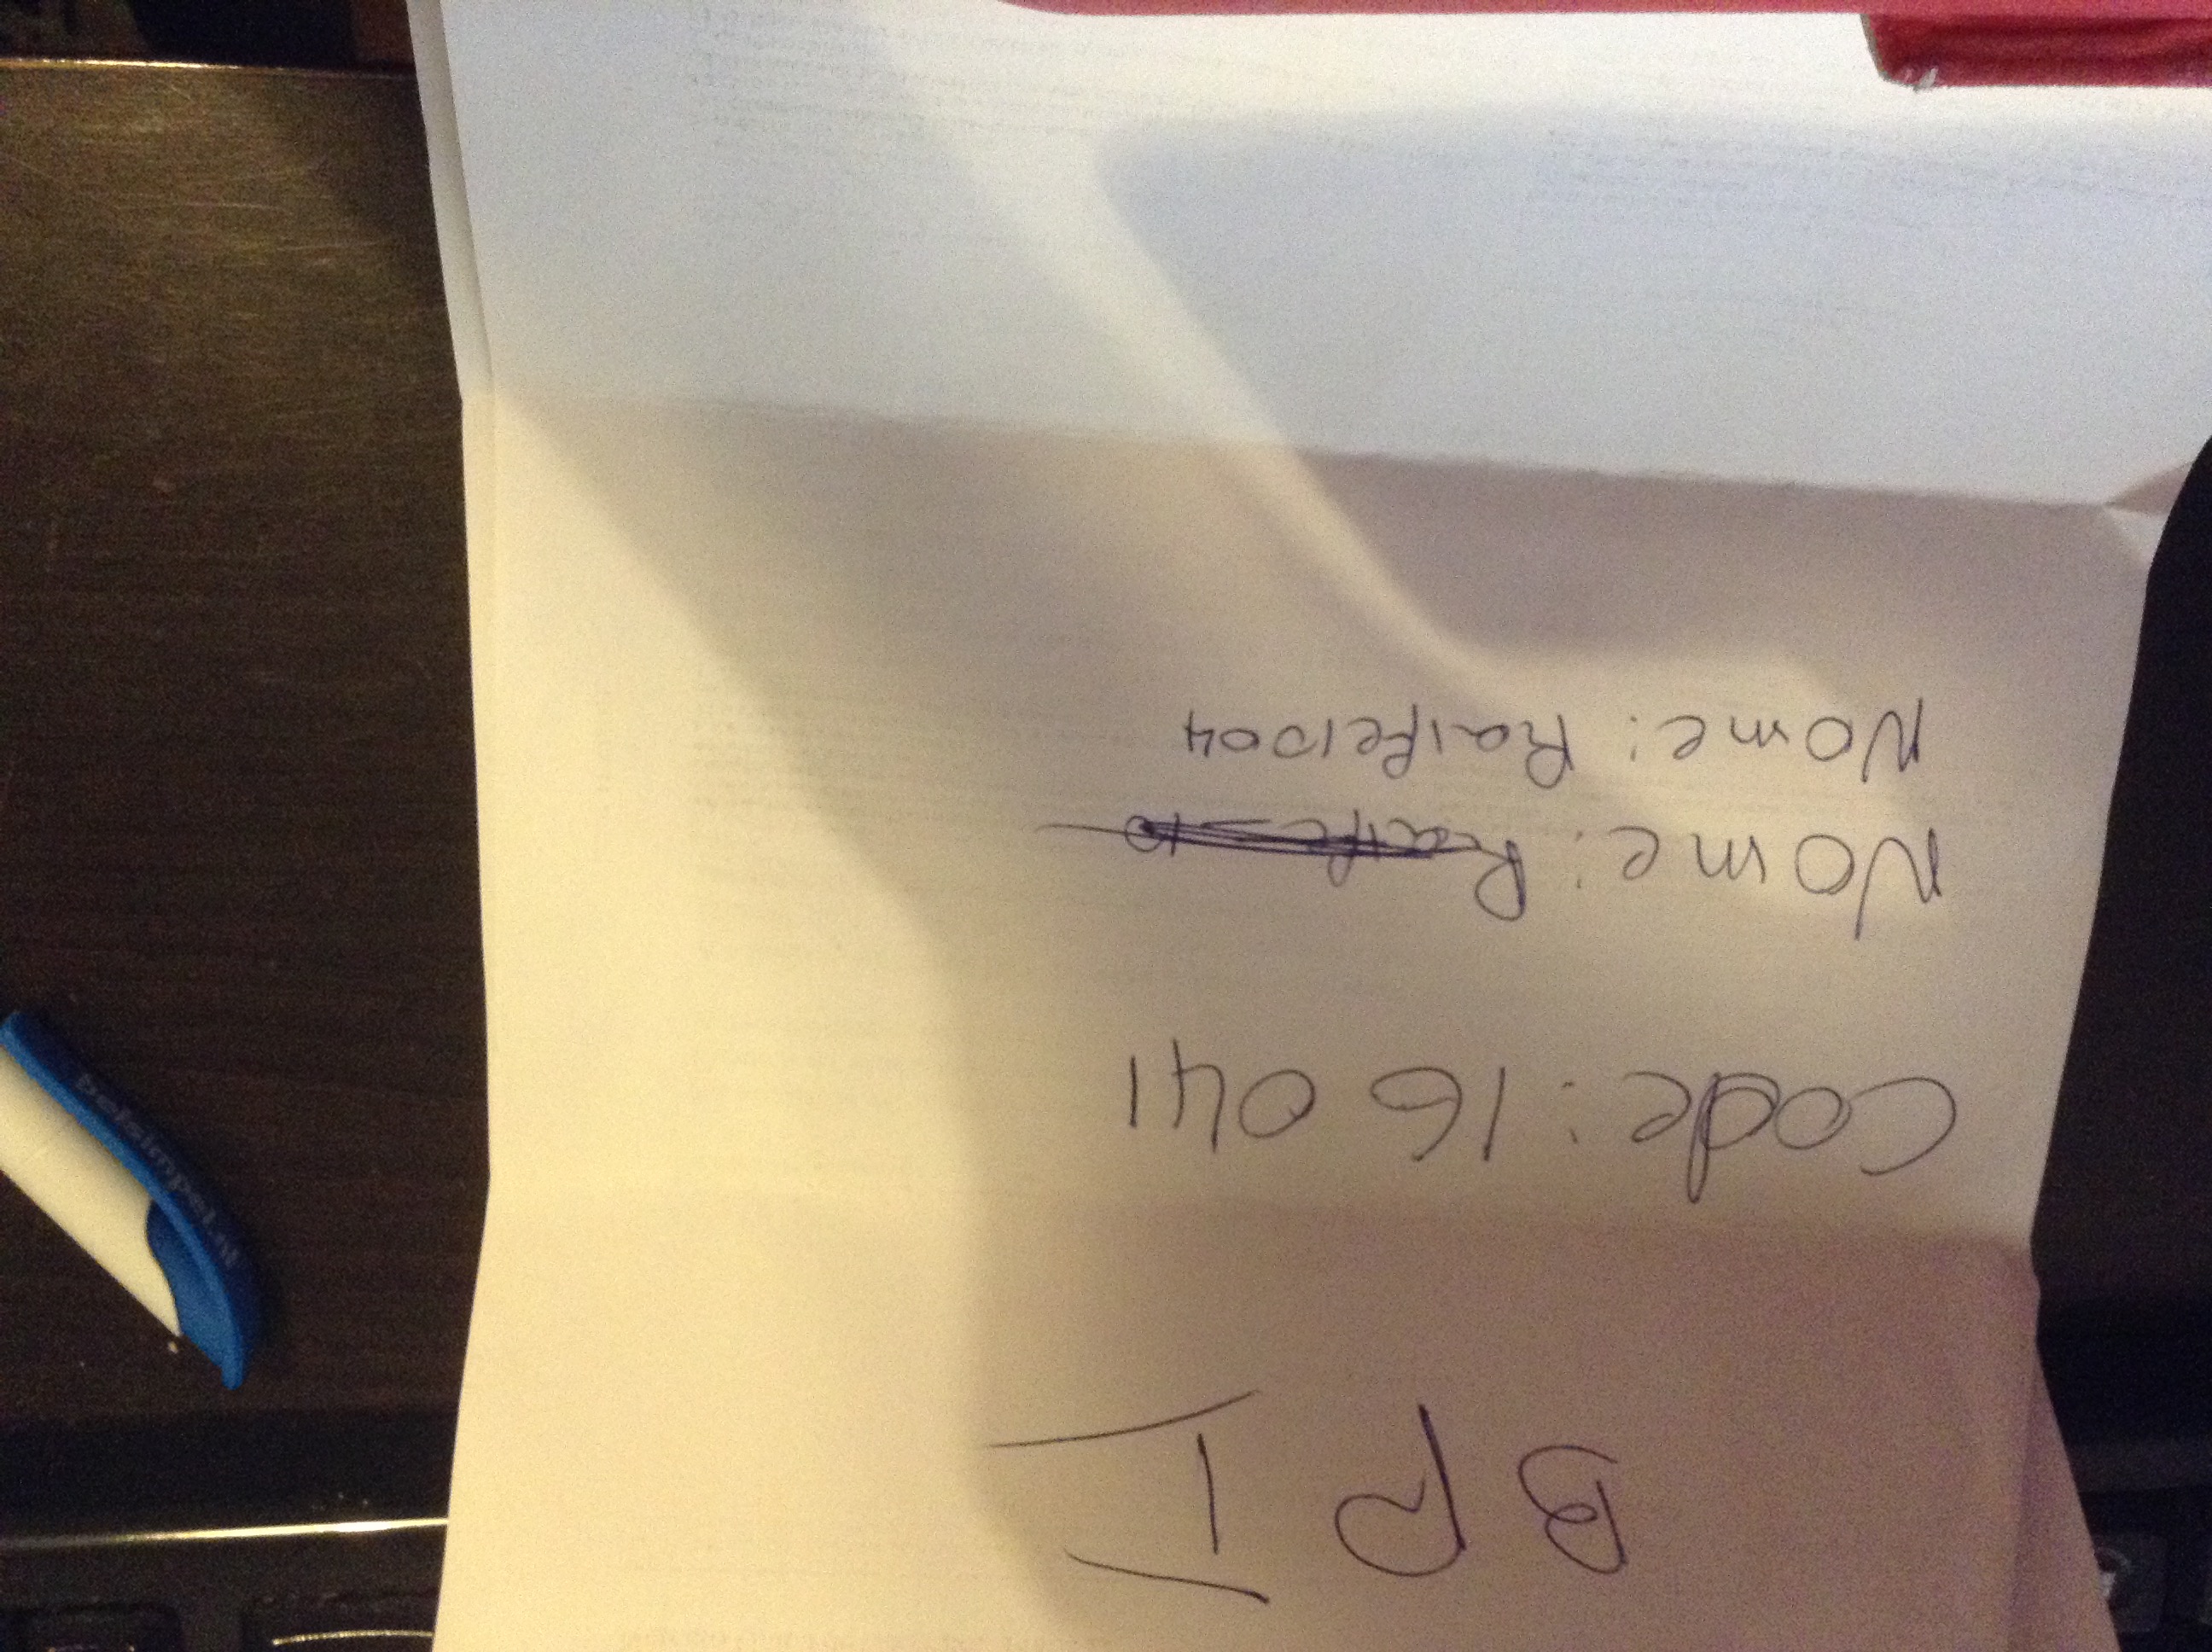 BPI
Code: 16041
Nome:
Nome: Raife1004